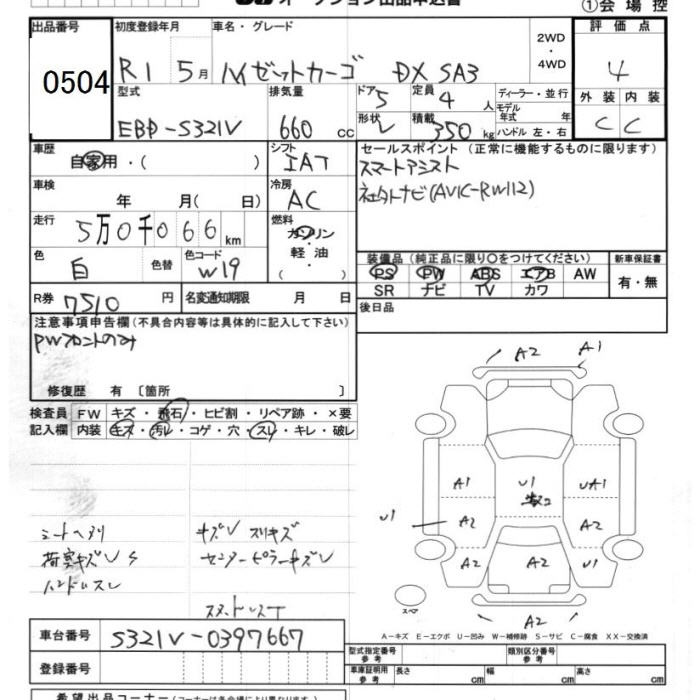 オークション出品申込書
①会場控
出品番号 0504
初度登録年月 R1 5月
車名・グレード ハイゼットカーゴ DX SA3
2WD・4WD
評価点 4
型式 EBD-S321V
排気量 660 cc
ドア 5
定員 4 人
形状 V
積載 350 kg
ディーラー・並行
モデル年式 年
ハンドル 左・右
外装 C
内装 C
車歴 自家用・( )
シフト IAT
セールスポイント (正常に機能するものに限ります)
スマートアシスト
社外ナビ(AVIC-RW112)
車検 年 月( 日)
冷房 AC
走行 5万0千066 km
燃料 ガソリン・軽油・( )
色 白
色替
色コード W19
装備品(純正品に限り○をつけてください)
PS PW ABS エアB AW
SR ナビ TV カワ
新車保証書 有・無
R券 7510 円
名変通知期限 月 日
後日品
注意事項申告欄(不具合内容等は具体的に記入して下さい)
PWフロントのみ
修復歴 有 〔箇所 〕
検査員 FW キズ・飛石・ヒビ割・リペア跡・×要
記入欄 内装 キズ・汚レ・コゲ・穴・スレ・キレ・破レ
A2 A1
A1 U1 UA1
U1 A2 A2
A2 A2 U1
A2
スペア
シートヘタリ キズU スリキズ
荷室キズUS センターピラーキズU
ハンドルスレ
A-キズ E-エクボ U-凹み W-補修跡 S-サビ C-腐食 XX-交換済
車台番号 S321V-0397667
型式指定番号 参考
類別区分番号 参考
登録番号
車庫証明用 参考 長さ cm 幅 cm 高さ cm
希望出品コーナー